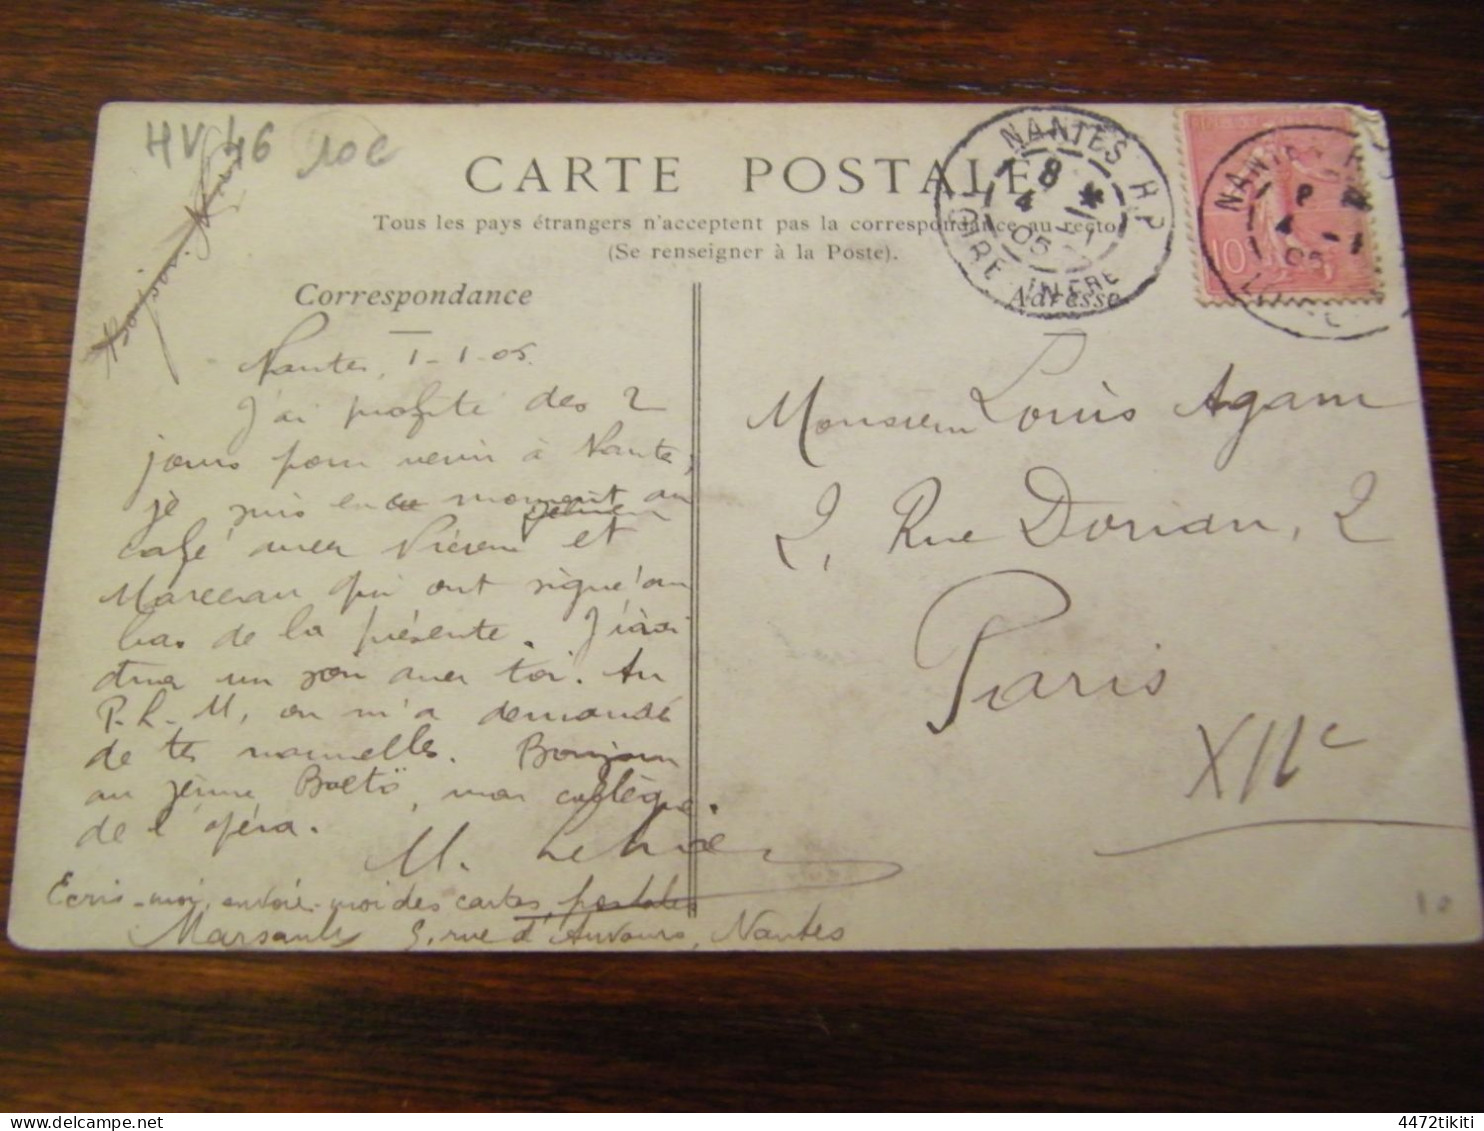 HV 46 10c
CARTE POSTALE
Tous les pays étrangers n'acceptent pas la correspondance au recto
(Se renseigner à la Poste).
Correspondance
Nantes, 1-1-05.
J'ai profité des 2
jours pour venir à Nantes,
je suis en ce moment au
café avec et
Marceau qui ont signé au
bas de la présente. J'
avec toi. Au
P.L.M, on m'a demandé
de tes nouvelles. Bonjour
au jeune Boëtö, mon collègue
de l'opéra.
M.
Ecris-moi, envoie-moi des cartes postales
5, rue d'Auvours, Nantes
NANTES R.P
8 *
4 - 1
05
LOIRE INFRE
Adresse
10
NANTES R.P
4 - 1
05
Monsieur Louis Agam
2, Rue Dorian, 2
Paris
XIIe
10
4472tikiti